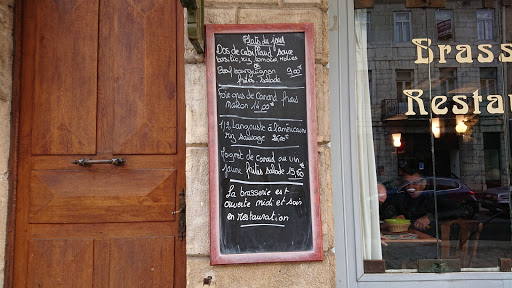 Plats du jour
Dos de cabillaud sauce
basilic, riz, tomate, 
ou
Boeuf bourguignon 9,00€
frites, salade
Foie gras de Canard frais
maison 14,00€
1/2 Langouste à l'américaine
riz sauvage
Magret de Canard au vin
jaune frites salade 15,60
La brasserie est
ouverte midi et soir
en restauration
Brass
Restau